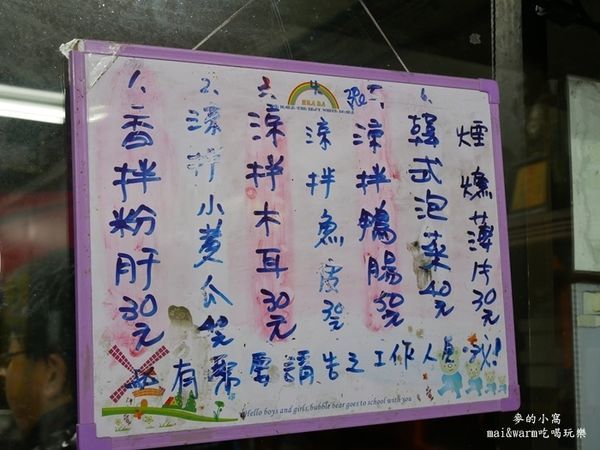 1. 香拌粉肝30元
2. 涼拌小黃瓜
3. 涼拌木耳30元
4. 涼拌魚皮
涼拌鴨腸
6. 韓式泡菜40元
煙燻薄片30元
有需要請告之工作人員,
Hello boys and girls, bubble bear goes to school with you
麥的小窩
mai&warm吃喝玩樂